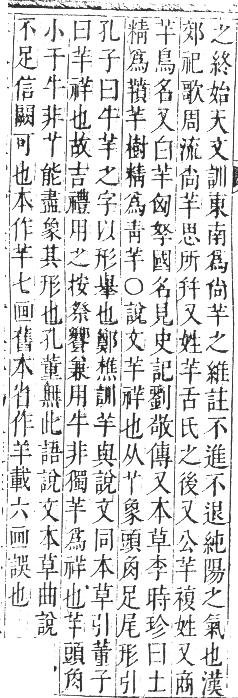 之終始天文訓東南爲尙羊之維註不進不退純陽之氣也漢
郊祀歌周流尙羊思所幷又姓羊舌氏之後又公羊複姓又商
羊鳥名又白羊匈孥國名見史記劉敬傳又本草李時珍曰土
精爲羵羊樹精爲靑羊○說文羊祥也从𦫳象頭角足尾形引
孔子曰牛羊之字以形舉也鄭樵訓羊與說文同本草引董子
曰羊祥也故吉禮用之按祭饗兼用牛非獨羊爲祥也羊頭角
小于牛非𦫳能盡象其形也孔董無此語說文本草曲說
不足信闕可也本作𦍌七画舊本省作羊載六画誤也